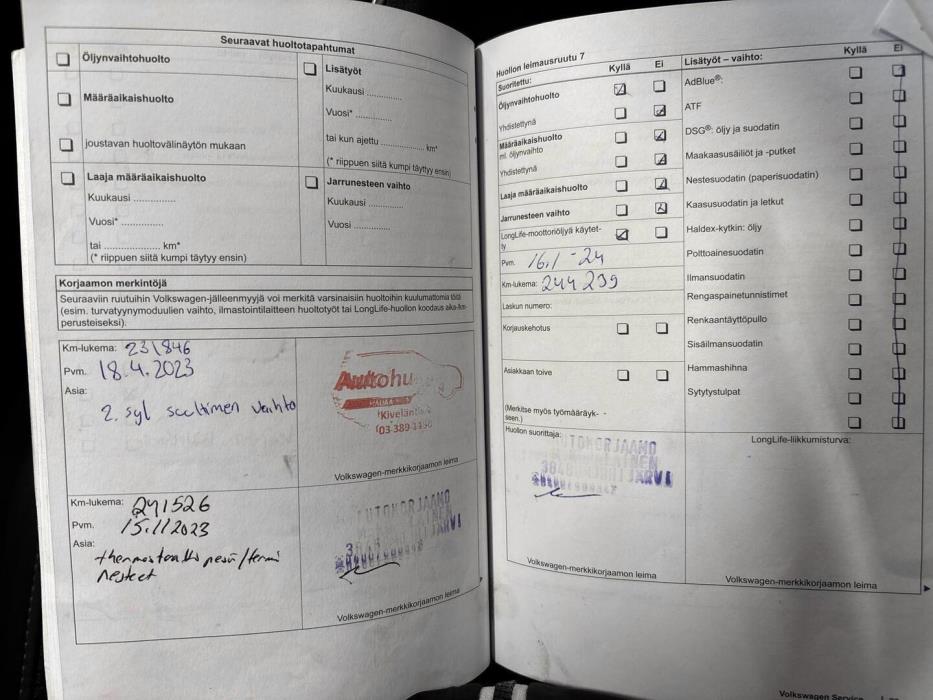 Seuraavat huoltotapahtumat
Öljynvaihtohuolto
Määräaikaishuolto
joustavan huoltovälinäytön mukaan
Lisätyöt
Kuukausi ..............
Vuosi* ..............
tai kun ajettu .................. km*
(* riippuen siitä kumpi täyttyy ensin)
Laaja määräaikaishuolto
Kuukausi ..............
Vuosi* ..............
tai .................... km*
(* riippuen siitä kumpi täyttyy ensin)
Jarrunesteen vaihto
Kuukausi ..............
Vuosi ..............
Korjaamon merkintöjä
Seuraaviin ruutuihin Volkswagen-jälleenmyyjä voi merkitä varsinaisiin huoltoihin kuulumattomia töitä
(esim. turvatyynymoduulien vaihto, ilmastointilaitteen huoltotyöt tai LongLife-huollon koodaus aika-/km-
perusteiseksi).
Km-lukema: 231846
Pvm. 18.4.2023
Asia:
2. syl suuttimen vaihto
Autohu
Kivelän
03-389
Volkswagen-merkkikorjaamon leima
Km-lukema: 241526
Pvm. 15.11.2023
Asia:
nesteet
AUTOKORJAAMO
JÄRVI
Volkswagen-merkkikorjaamon leima
Huollon leimausruutu 7
Suoritettu: Kyllä Ei
Öljynvaihtohuolto
Yhdistettynä
Määräaikaishuolto
ml. öljynvaihto
Yhdistettynä
Laaja määräaikaishuolto
Jarrunesteen vaihto
LongLife-moottoriöljyä käytet-
ty
Pvm. 16.1 -24
Km-lukema: 244 239
Laskun numero:
Korjauskehotus
Asiakkaan toive
(Merkitse myös työmääräyk-
seen.)
Huollon suorittaja:
UTOKORJAAMO
INEN
JÄRVI
Volkswagen-merkkikorjaamon leima
Lisätyöt – vaihto: Kyllä Ei
AdBlue®:
ATF
DSG®: öljy ja suodatin
Maakaasusäiliöt ja -putket
Nestesuodatin (paperisuodatin)
Kaasusuodatin ja letkut
Haldex-kytkin: öljy
Polttoainesuodatin
Ilmansuodatin
Rengaspainetunnistimet
Renkaantäyttöpullo
Sisäilmansuodatin
Hammashihna
Sytytystulpat
LongLife-liikkumisturva:
Volkswagen-merkkikorjaamon leima
Volkswagen Service